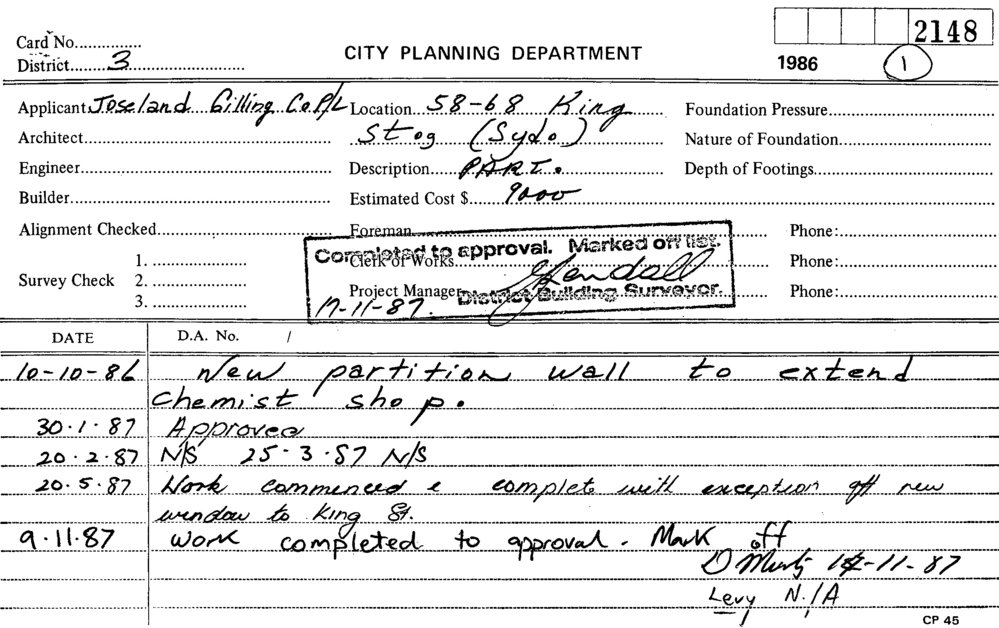 2148
Card No..............
District........3.....................
CITY PLANNING DEPARTMENT
1986
1
Applicant Joseland Gilling Co P/L Location 58-68 King
Foundation Pressure
Architect
St (Syd.)
Nature of Foundation
Engineer
Description PART.
Depth of Footings
Builder
Estimated Cost $ 9000
Alignment Checked
Foreman
Phone:
Completed to approval. Marked off list.
Clerk of Works
Phone:
Survey Check
1.
2.
3.
Project Manager
Phone:
Kendall
District Building Surveyor.
17-11-87.
DATE
D.A. No. /
10-10-86 New partition wall to extend
chemist shop.
30.1.87 Approved
20.2.87 N/S 25-3-87 N/S
20.5.87 Work commenced & complete with exception off new
window to King St.
9.11.87 Work completed to approval. Mark off
-11-87
Levy N./A
CP 45